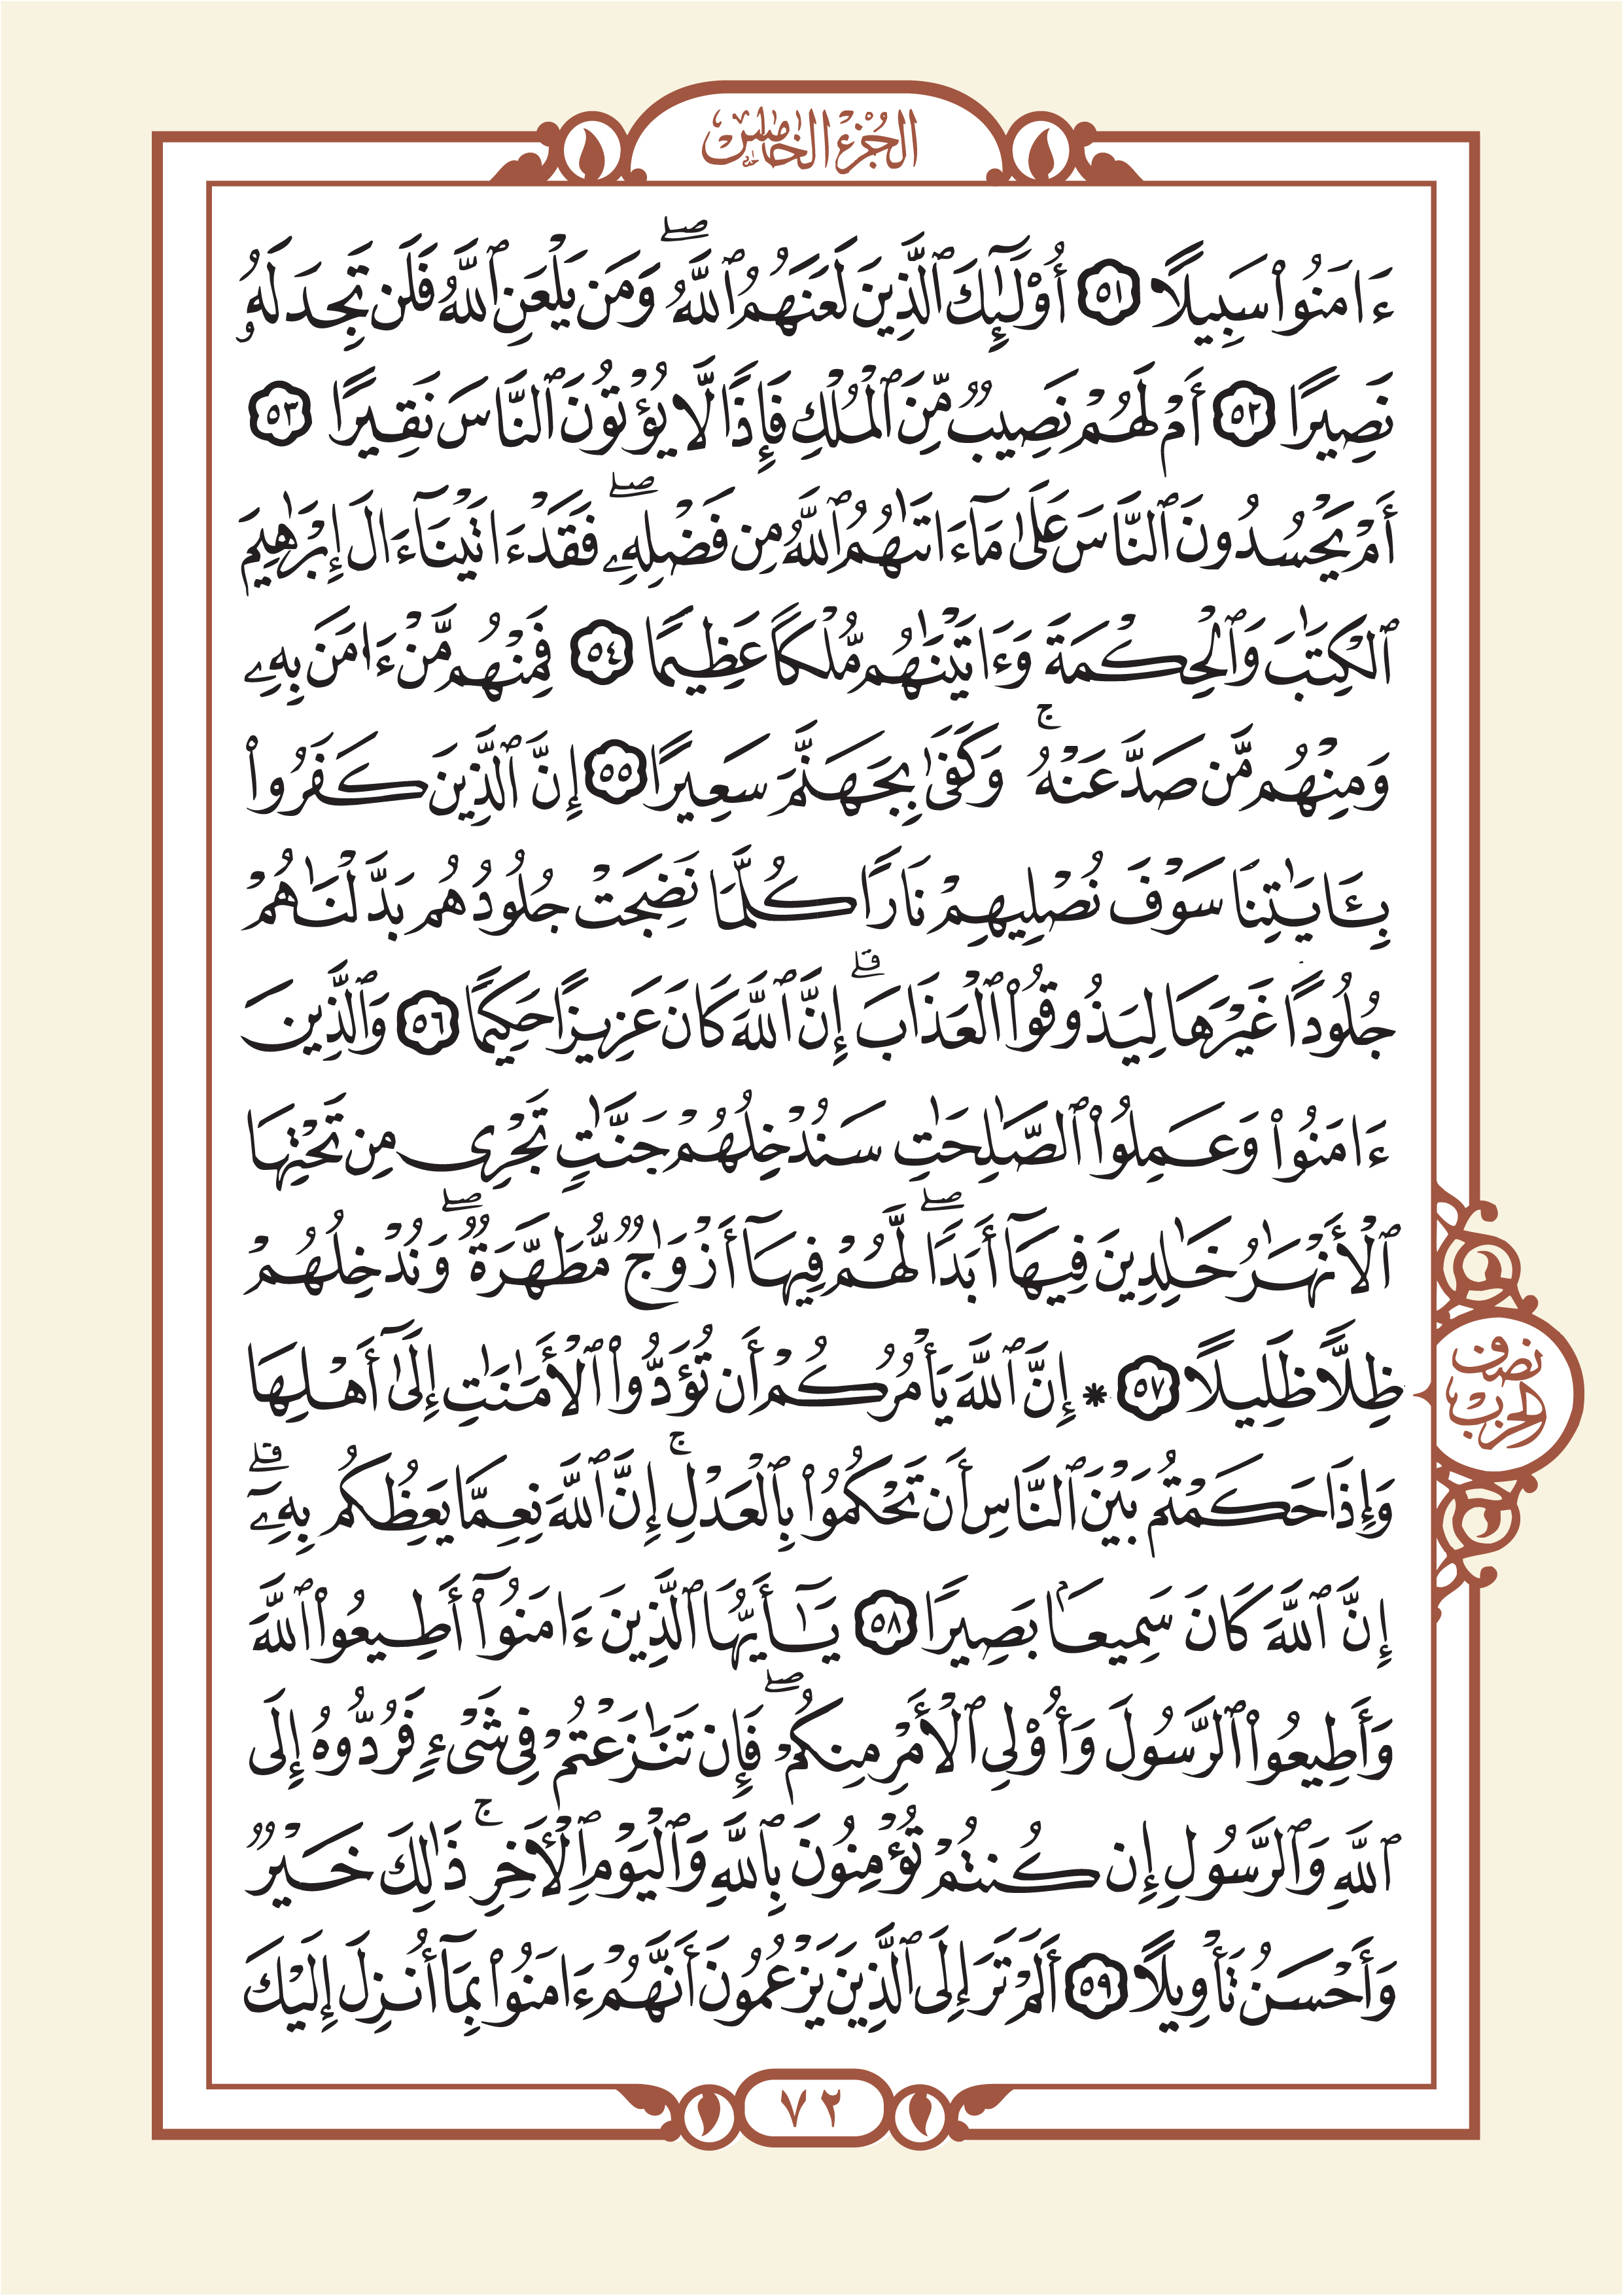 الجزء الخامس
ءَامَنُوا۟ سَبِيلًا ٥١ أُو۟لَـٰٓئِكَ ٱلَّذِينَ لَعَنَهُمُ ٱللَّهُ ۖ وَمَن يَلْعَنِ ٱللَّهُ فَلَن تَجِدَ لَهُۥ
نَصِيرًا ٥٢ أَمْ لَهُمْ نَصِيبٌ مِّنَ ٱلْمُلْكِ فَإِذًا لَّا يُؤْتُونَ ٱلنَّاسَ نَقِيرًا ٥٣
أَمْ يَحْسُدُونَ ٱلنَّاسَ عَلَىٰ مَآ ءَاتَىٰهُمُ ٱللَّهُ مِن فَضْلِهِۦ ۖ فَقَدْ ءَاتَيْنَآ ءَالَ إِبْرَٰهِيمَ
ٱلْكِتَـٰبَ وَٱلْحِكْمَةَ وَءَاتَيْنَـٰهُم مُّلْكًا عَظِيمًا ٥٤ فَمِنْهُم مَّنْ ءَامَنَ بِهِۦ
وَمِنْهُم مَّن صَدَّ عَنْهُ ۚ وَكَفَىٰ بِجَهَنَّمَ سَعِيرًا ٥٥ إِنَّ ٱلَّذِينَ كَفَرُوا۟
بِـَٔايَـٰتِنَا سَوْفَ نُصْلِيهِمْ نَارًا كُلَّمَا نَضِجَتْ جُلُودُهُم بَدَّلْنَـٰهُمْ
جُلُودًا غَيْرَهَا لِيَذُوقُوا۟ ٱلْعَذَابَ ۗ إِنَّ ٱللَّهَ كَانَ عَزِيزًا حَكِيمًا ٥٦ وَٱلَّذِينَ
ءَامَنُوا۟ وَعَمِلُوا۟ ٱلصَّـٰلِحَـٰتِ سَنُدْخِلُهُمْ جَنَّـٰتٍ تَجْرِى مِن تَحْتِهَا
ٱلْأَنْهَـٰرُ خَـٰلِدِينَ فِيهَآ أَبَدًا ۖ لَّهُمْ فِيهَآ أَزْوَٰجٌ مُّطَهَّرَةٌ ۖ وَنُدْخِلُهُمْ
ظِلًّا ظَلِيلًا ٥٧ * إِنَّ ٱللَّهَ يَأْمُرُكُمْ أَن تُؤَدُّوا۟ ٱلْأَمَـٰنَـٰتِ إِلَىٰٓ أَهْلِهَا
نصف
الحزب
وَإِذَا حَكَمْتُم بَيْنَ ٱلنَّاسِ أَن تَحْكُمُوا۟ بِٱلْعَدْلِ ۚ إِنَّ ٱللَّهَ نِعِمَّا يَعِظُكُم بِهِۦٓ ۗ
إِنَّ ٱللَّهَ كَانَ سَمِيعًۢا بَصِيرًا ٥٨ يَـٰٓأَيُّهَا ٱلَّذِينَ ءَامَنُوٓا۟ أَطِيعُوا۟ ٱللَّهَ
وَأَطِيعُوا۟ ٱلرَّسُولَ وَأُو۟لِى ٱلْأَمْرِ مِنكُمْ ۖ فَإِن تَنَـٰزَعْتُمْ فِى شَىْءٍ فَرُدُّوهُ إِلَى
ٱللَّهِ وَٱلرَّسُولِ إِن كُنتُمْ تُؤْمِنُونَ بِٱللَّهِ وَٱلْيَوْمِ ٱلْـَٔاخِرِ ۚ ذَٰلِكَ خَيْرٌ
وَأَحْسَنُ تَأْوِيلًا ٥٩ أَلَمْ تَرَ إِلَى ٱلَّذِينَ يَزْعُمُونَ أَنَّهُمْ ءَامَنُوا۟ بِمَآ أُنزِلَ إِلَيْكَ
٧٢